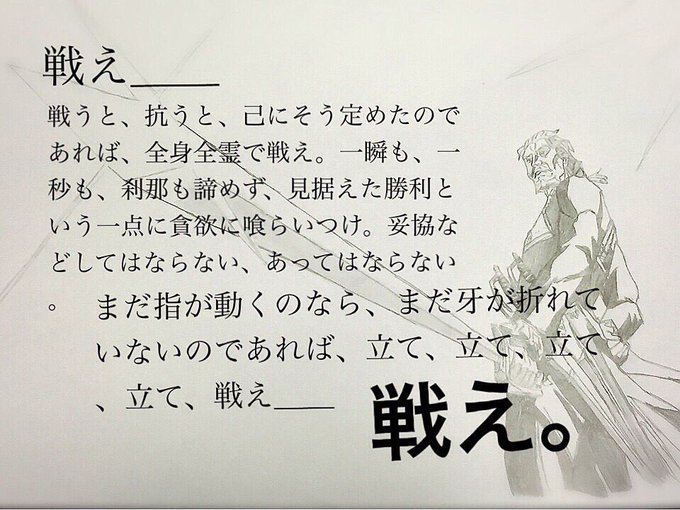 戦え____
戦うと、抗うと、己にそう定めたので
あれば、全身全霊で戦え。一瞬も、一
秒も、刹那も諦めず、見据えた勝利と
いう一点に貪欲に喰らいつけ。妥協な
どしてはならない、あってはならない
。 まだ指が動くのなら、まだ牙が折れて
いないのであれば、立て、立て、立て
、立て、戦え____
戦え。